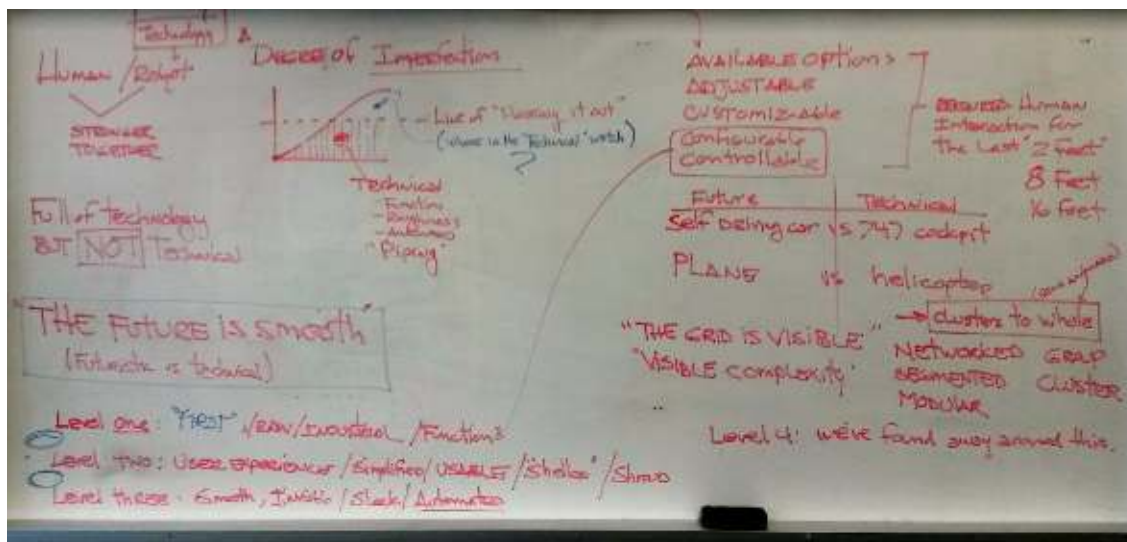 Technology
Human / Robot
STRONGER
TOGETHER
DEGREE OF Imperfection
Line of "Housing it out"
(where is the "Technical" watch)
?
Technical
- Function
- Roughness
"Piping"
Full of technology
BUT NOT Technical
"THE FUTURE IS Smooth"
(Futuristic is technical)
Level one: "FIRST" /RAW/INDUSTRIAL /Functions
Level TWO: USER experiences /Simplified/USABLE/"Shelled"/Shroud
Level three - Smooth, Invisible/Sleek/Automated
AVAILABLE OPTIONS
ADJUSTABLE
CUSTOMIZABLE
Configurable
Controllable
REQUIRED Human
Interaction for
The Last "2 feet"
8 Feet
16 Feet
Future Technical
Self Driving car vs 747 cockpit
PLANE vs helicopter
clusters to whole
"THE GRID IS VISIBLE"
"VISIBLE Complexity"
NETWORKED GRAP
SEGMENTED CLUSTER
MODULAR
Level 4: we've found away around this.